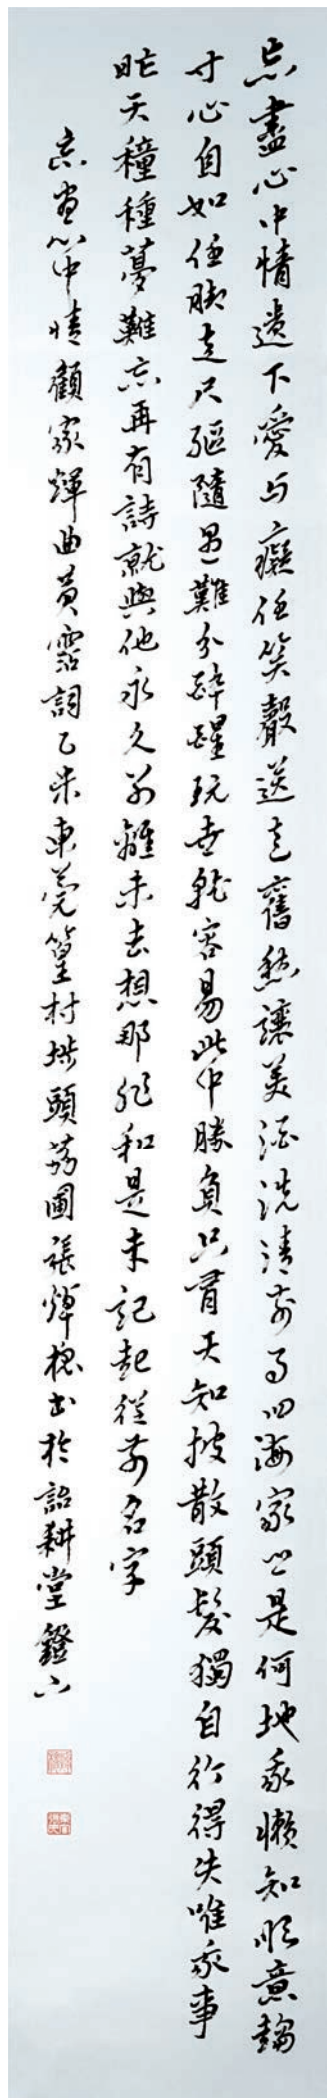 忘盡心中情遺下愛与癡任笑聲送走舊愁讓美酒洗清前事四海家是何地我懶知順意趨
寸心自如任腳走尺軀隨遇難分醉醒玩世就容易此中勝負只有天知披散頭髮獨自行得失唯我事
昨天種種夢難忘再有詩就與他永久別離未去想那非和是未記起從前名字
忘盡心中情顧家輝曲黃霑詞乙未東莞篁村頭荔圃張書於詒耕堂鐙下